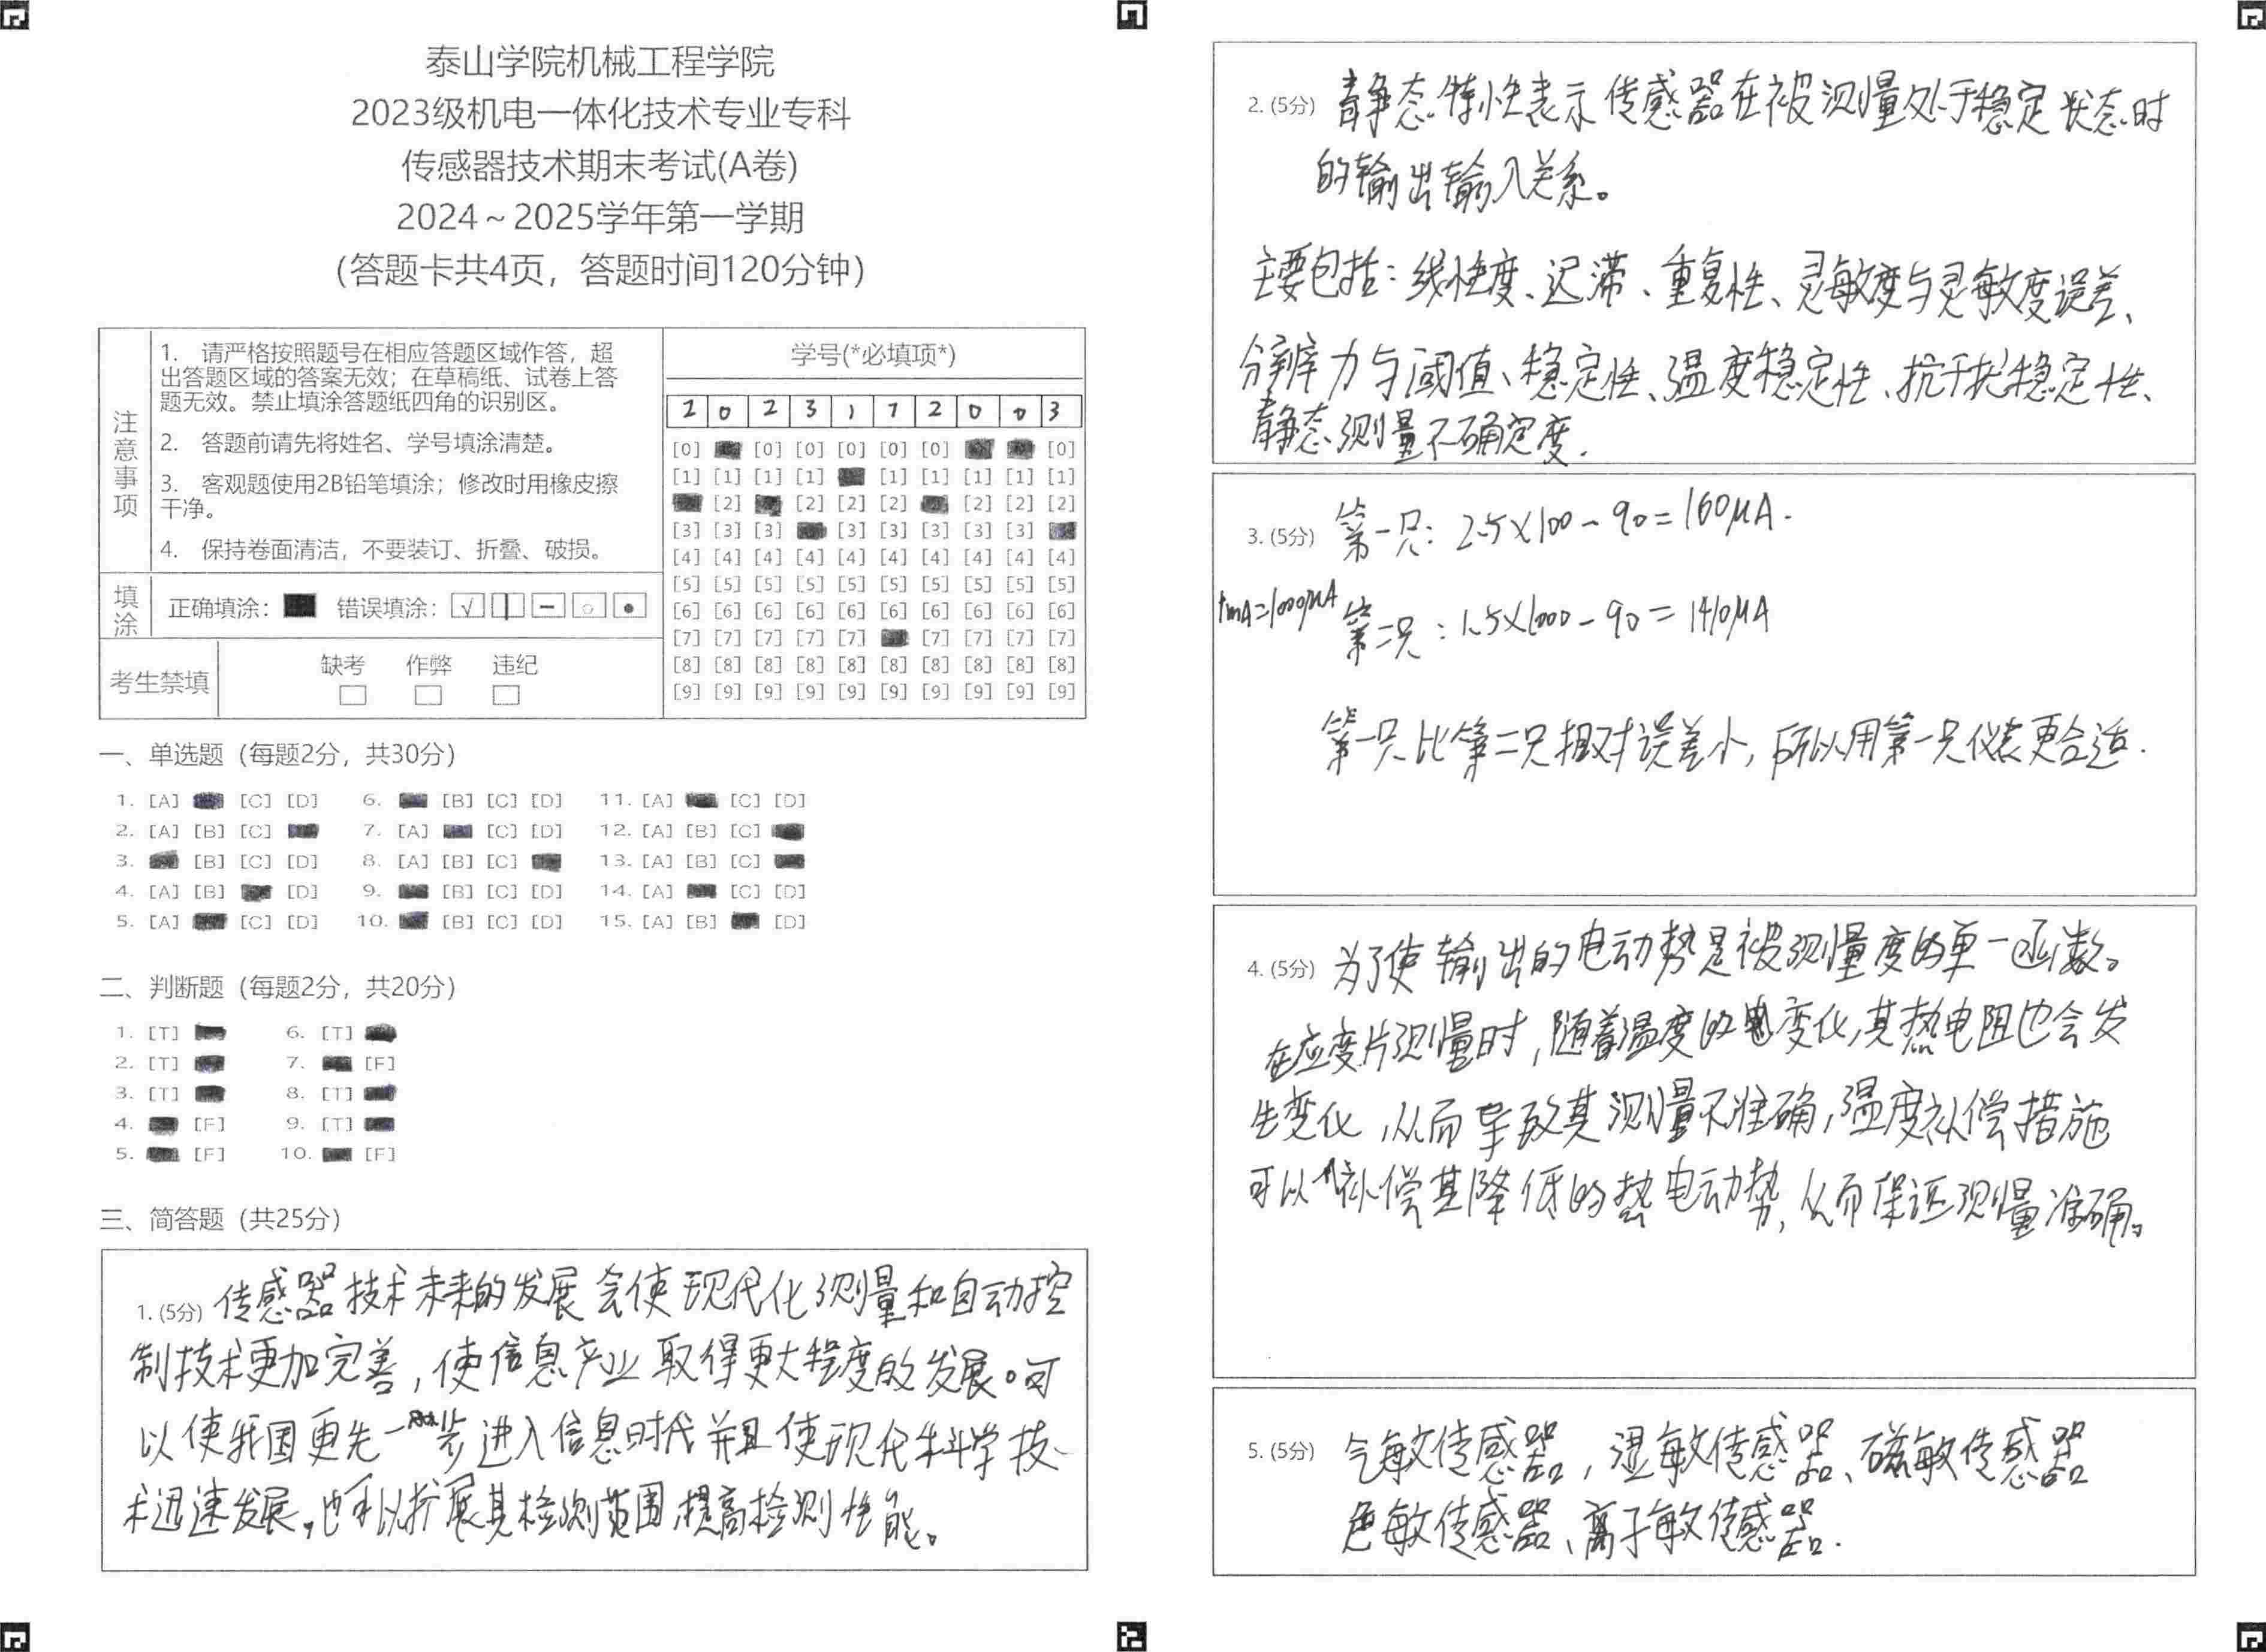 泰山学院机械工程学院
2023级机电一体化技术专业专科
传感器技术期末考试(A卷)
2024～2025学年第一学期
(答题卡共4页，答题时间120分钟)
注意事项
1. 请严格按照题号在相应答题区域作答，超
出答题区域的答案无效；在草稿纸、试卷上答
题无效。禁止填涂答题纸四角的识别区。
2. 答题前请先将姓名、学号填涂清楚。
3. 客观题使用2B铅笔填涂；修改时用橡皮擦
干净。
4. 保持卷面清洁，不要装订、折叠、破损。
填涂
正确填涂： 错误填涂：
考生禁填
缺考 作弊 违纪
学号(*必填项*)
2 0 2 3 1 7 2 0 0 3
[0] [0] [0] [0] [0] [0] [0]
[1] [1] [1] [1] [1] [1] [1] [1] [1]
[2] [2] [2] [2] [2] [2] [2]
[3] [3] [3] [3] [3] [3] [3] [3]
[4] [4] [4] [4] [4] [4] [4] [4] [4] [4]
[5] [5] [5] [5] [5] [5] [5] [5] [5] [5]
[6] [6] [6] [6] [6] [6] [6] [6] [6] [6]
[7] [7] [7] [7] [7] [7] [7] [7] [7]
[8] [8] [8] [8] [8] [8] [8] [8] [8] [8]
[9] [9] [9] [9] [9] [9] [9] [9] [9] [9]
一、单选题（每题2分，共30分）
1. [A] [C] [D] 6. [B] [C] [D] 11. [A] [C] [D]
2. [A] [B] [C] 7. [A] [C] [D] 12. [A] [B] [C]
3. [B] [C] [D] 8. [A] [B] [C] 13. [A] [B] [C]
4. [A] [B] [D] 9. [B] [C] [D] 14. [A] [C] [D]
5. [A] [C] [D] 10. [B] [C] [D] 15. [A] [B] [D]
二、判断题（每题2分，共20分）
1. [T] 6. [T]
2. [T] 7. [F]
3. [T] 8. [T]
4. [F] 9. [T]
5. [F] 10. [F]
三、简答题（共25分）
1. (5分) 传感器技术未来的发展会使现代化测量和自动控
制技术更加完善，使信息产业取得更大程度的发展。可
以使我国更先一步进入信息时代并且使现代科学技
术迅速发展。也可以扩展其检测范围，提高检测性能。
2. (5分) 静态特性表示传感器在被测量处于稳定状态时
的输出输入关系。
主要包括：线性度、迟滞、重复性、灵敏度与灵敏度误差、
分辨力与阈值、稳定性、温度稳定性、抗干扰稳定性、
静态测量不确定度.
3. (5分) 第一只：2.5×100-90=160μA.
1mA=1000μA 第二只：1.5×1000-90=1410μA
第一只比第二只相对误差小，所以用第一只仪表更合适.
4. (5分) 为了使输出的电动势是被测量度的单一函数。
在应变片测量时，随着温度的变化，其热电阻也会发
生变化，从而导致其测量不准确，温度补偿措施
可以补偿其降低的热电动势，从而保证测量准确。
5. (5分) 气敏传感器，湿敏传感器、磁敏传感器
色敏传感器、离子敏传感器.